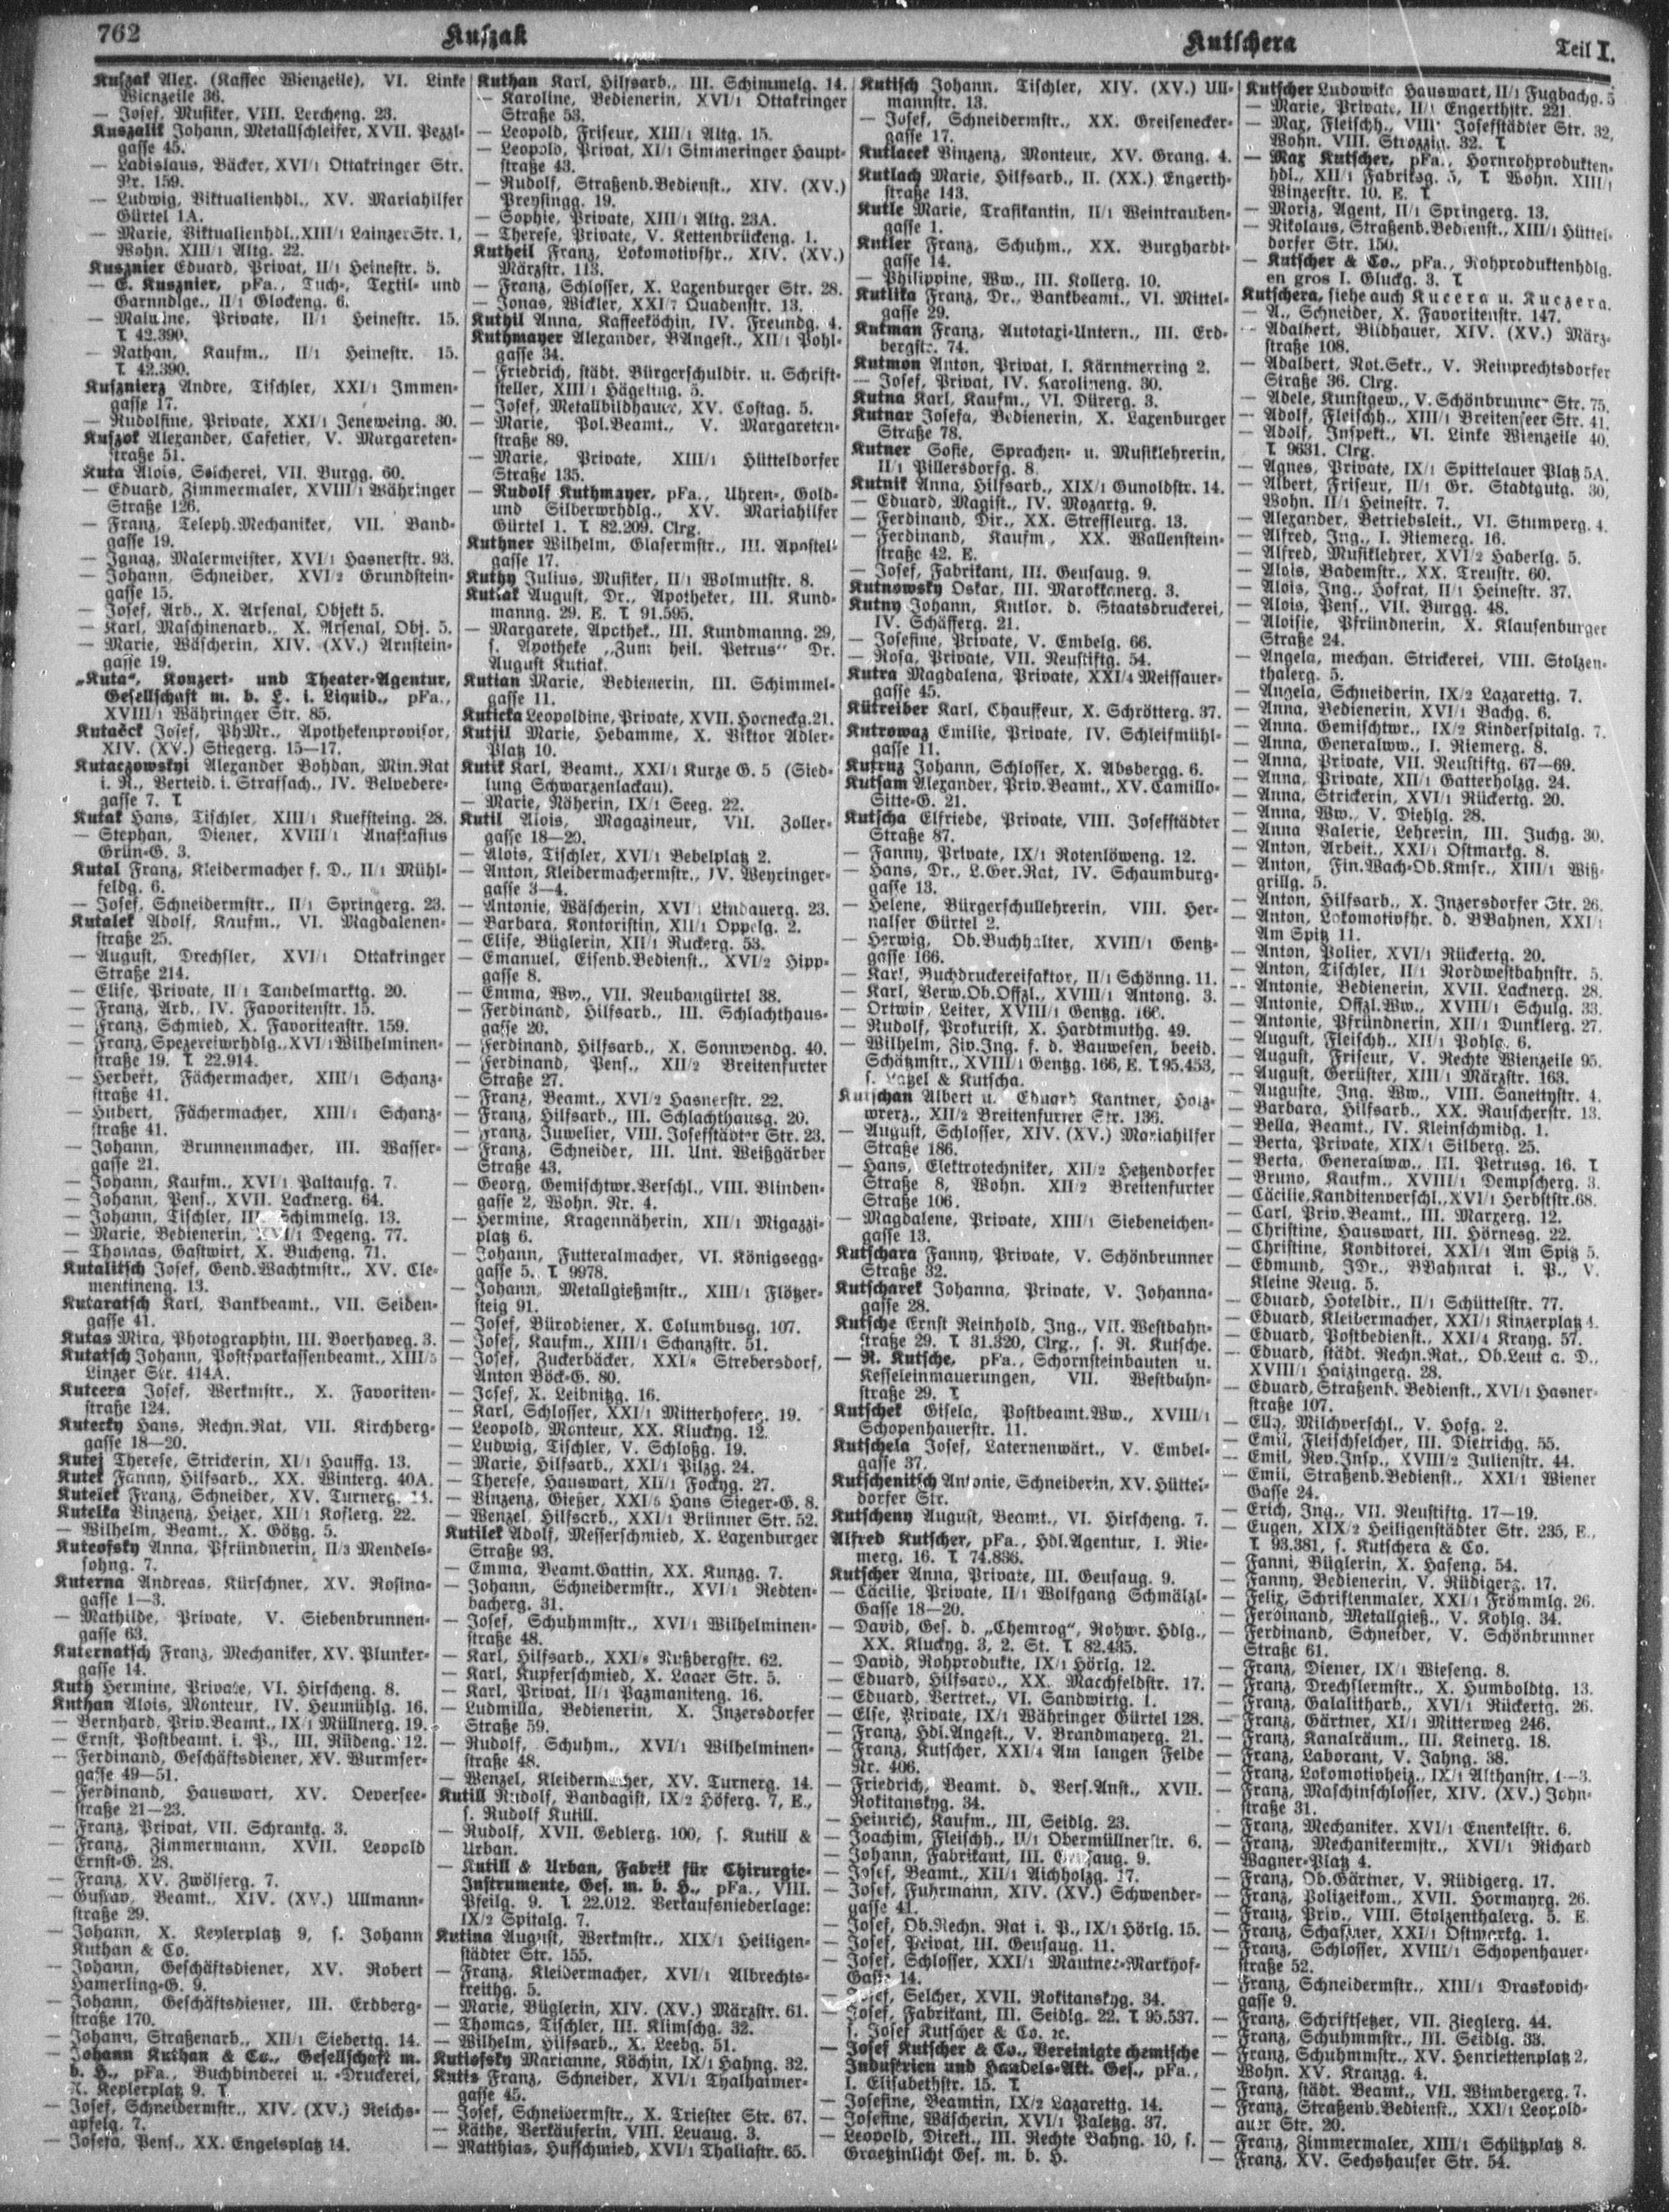 762
Kuszak
Kutschera
Teil I.
Kuszak Alex. (Kaffee Wienzeile), VI. Linke
Wienzeile 36.
— Josef, Musiker, VIII. Lercheng. 23.
Kuszalik Johann, Metallschleifer, XVII. Pezzl-
gasse 45.
— Ladislaus, Bäcker, XVI/1 Ottakringer Str.
Nr. 159.
— Ludwig, Viktualienhdl., XV. Mariahilfer
Gürtel 1A.
— Marie, Viktualienhdl., XIII/1 Lainzer Str. 1,
Wohn. XIII/1 Altg. 22.
Kusznier Eduard, Privat, II/1 Heinestr. 5.
— E. Kusznier, pFa., Tuch-, Textil- und
Garnndlge., II/1 Glockeng. 6.
— Private, II/1 Heinestr. 15.
T. 42.390.
— Nathan, Kaufm., II/1 Heinestr. 15.
T. 42.390.
Kusznierz Andre, Tischler, XXI/1 Immen-
gasse 17.
— Rudolfine, Private, XXI/1 Jeneweing. 30.
Kuszok Alexander, Cafetier, V. Margareten-
straße 51.
Kuta Alois, Selcherei, VII. Burgg. 60.
— Eduard, Zimmermaler, XVIII/1 Währinger
Straße 126.
— Franz, Teleph.Mechaniker, VII. Band-
gasse 19.
— Ignaz, Malermeister, XVI/1 Hasnerstr. 93.
— Johann, Schneider, XVI/2 Grundstein-
gasse 15.
— Josef, Arb., X. Arsenal, Objekt 5.
— Karl, Maschinenarb., X. Arsenal, Obj. 5.
— Marie, Wäscherin, XIV. (XV.) Arnstein-
gasse 19.
„Kuta“, Konzert- und Theater-Agentur,
Gesellschaft m. b. H. i. Liquid., pFa.,
XVIII/1 Währinger Str. 85.
Kutaček Josef, PhMr., Apothekenprovisor,
XIV. (XV.) Stiegerg. 15—17.
Kutaczowskyi Alexander Bohdan, Min.Rat
i. R., Verteid. i. Strafsach., IV. Belvedere-
gasse 7. T.
Kutak Hans, Tischler, XIII/1 Kueffsteing. 28.
— Stephan, Diener, XVIII/1 Anastasius
Grün-G. 3.
Kutal Franz, Kleidermacher f. D., II/1 Mühl-
feldg. 6.
— Josef, Schneidermstr., II/1 Springerg. 23.
Kutalek Adolf, Kaufm., VI. Magdalenen-
straße 25.
— August, Drechsler, XVI/1 Ottakringer
Straße 214.
— Elise, Private, II/1 Tandelmarktg. 20.
— Franz, Arb., IV. Favoritenstr. 15.
— Franz, Schmied, X. Favoritenstr. 159.
— Franz, Spezereiwrhdlg., XVI/1 Wilhelminen-
straße 19. T. 22.914.
— Herbert, Fächermacher, XIII/1 Schanz-
straße 41.
— Hubert, Fächermacher, XIII/1 Schanz-
straße 41.
— Johann, Brunnenmacher, III. Wasser-
gasse 21.
— Johann, Kaufm., XVI/1 Paltaufg. 7.
— Johann, Pens., XVII. Lacknerg. 64.
— Johann, Tischler, Schimmelg. 13.
— Marie, Bedienerin, XVI/1 Degeng. 77.
— Thomas, Gastwirt, X. Bucheng. 71.
Kutalitsch Josef, Gend.Wachtmstr., XV. Cle-
mentineng. 13.
Kutaratsch Karl, Bankbeamt., VII. Seiden-
gasse 41.
Kutas Mira, Photographin, III. Boerhaveg. 3.
Kutatsch Johann, Postsparkassenbeamt., XIII/5
Linzer Str. 414A.
Kutcera Josef, Werkmstr., X. Favoriten-
straße 124.
Kutecky Hans, Rechn.Rat, VII. Kirchberg-
gasse 18—20.
Kutej Therese, Strickerin, XI/1 Hauffg. 13.
Kutek Fanny, Hilfsarb., XX. Winterg. 40A.
Kutelek Franz, Schneider, XV. Turnerg.
Kutelka Vinzenz, Heizer, XII/1 Koflerg. 22.
— Wilhelm, Beamt., X. Götzg. 5.
Kuteofsky Anna, Pfründnerin, II/3 Mendels-
sohng. 7.
Kuterna Andreas, Kürschner, XV. Rosina-
gasse 1—3.
— Mathilde, Private, V. Siebenbrunnen-
gasse 63.
Kuternatsch Franz, Mechaniker, XV. Plunker-
gasse 14.
Kuth Hermine, Private, VI. Hirscheng. 8.
Kuthan Alois, Monteur, IV. Heumühlg. 16.
— Bernhard, Priv.Beamt., IX/1 Müllnerg. 19.
— Ernst, Postbeamt. i. P., III. Rüdeng. 12.
— Ferdinand, Geschäftsdiener, XV. Wurmser-
gasse 49—51.
— Ferdinand, Hauswart, XV. Oeversee-
straße 21—23.
— Franz, Privat, VII. Schrankg. 3.
— Franz, Zimmermann, XVII. Leopold
Ernst-G. 28.
— Franz, XV. Zwölferg. 7.
— Gustav, Beamt., XIV. (XV.) Ullmann-
straße 29.
— Johann, X. Keplerplatz 9, s. Johann
Kuthan & Co.
— Johann, Geschäftsdiener, XV. Robert
Hamerling-G. 9.
— Johann, Geschäftsdiener, III. Erdberg-
straße 170.
— Johann, Straßenarb., XII/1 Siebertg. 14.
— Johann Kuthan & Co., Gesellschaft m.
b. H., pFa., Buchbinderei u. -Druckerei,
X. Keplerplatz 9. T.
— Josef, Schneidermstr., XIV. (XV.) Reichs-
apfelg. 7.
— Josefa, Pens., XX. Engelsplatz 14.
Kuthan Karl, Hilfsarb., III. Schimmelg. 14.
— Karoline, Bedienerin, XVI/1 Ottakringer
Straße 53.
— Leopold, Friseur, XIII/1 Altg. 15.
— Leopold, Privat, XI/1 Simmeringer Haupt-
straße 43.
— Rudolf, Straßenb.Bedienst., XIV. (XV.)
Preysingg. 19.
— Sophie, Private, XIII/1 Altg. 23A.
— Therese, Private, V. Kettenbrückeng. 1.
Kutheil Franz, Lokomotivfhr., XIV. (XV.)
Märzstr. 113.
— Franz, Schlosser, X. Laxenburger Str. 28.
— Jonas, Wickler, XXI/7 Quadenstr. 13.
Kuthil Anna, Kaffeeköchin, IV. Freundg. 4.
Kuthmayer Alexander, BAngest., XII/1 Pohl-
gasse 34.
— Friedrich, städt. Bürgerschuldir. u. Schrift-
steller, XIII/1 Hägeling. 5.
— Josef, Metallbildhauer, XV. Costag. 5.
— Marie, Pol.Beamt., V. Margareten-
straße 89.
— Marie, Private, XIII/1 Hütteldorfer
Straße 135.
— Rudolf Kuthmayer, pFa., Uhren-, Gold-
und Silberwrhdlg., XV. Mariahilfer
Gürtel 1. T. 82.209. Clrg.
Kuthner Wilhelm, Glasermstr., III. Apostel-
gasse 17.
Kuthy Julius, Musiker, II/1 Wolmutstr. 8.
Kutiak August, Dr., Apotheker, III. Kund-
manng. 29. E. T. 91.595.
— Margarete, Apothek., III. Kundmanng. 29,
s. Apotheke „Zum heil. Petrus“ Dr.
August Kutiak.
Kutian Marie, Bedienerin, III. Schimmel-
gasse 11.
Kuticka Leopoldine, Private, XVII. Horneckg. 21.
Kutjil Marie, Hebamme, X. Viktor Adler-
Platz 10.
Kutik Karl, Beamt., XXI/1 Kurze G. 5 (Sied-
lung Schwarzenlackau).
— Marie, Näherin, IX/1 Seeg. 22.
Kutil Alois, Magazineur, VII. Zoller-
gasse 18—20.
— Alois, Tischler, XVI/1 Bebelplatz 2.
— Anton, Kleidermachermstr., IV. Weyringer-
gasse 3—4.
— Antonie, Wäscherin, XVI/1 Lindauerg. 23.
— Barbara, Kontoristin, XII/1 Oppelg. 2.
— Elise, Büglerin, XII/1 Ruckerg. 53.
— Emanuel, Eisenb.Bedienst., XVI/2 Hipp-
gasse 8.
— Emma, Ww., VII. Neubaugürtel 38.
— Ferdinand, Hilfsarb., III. Schlachthaus-
gasse 20.
— Ferdinand, Hilfsarb., X. Sonnwendg. 40.
— Ferdinand, Pens., XII/2 Breitenfurter
Straße 27.
— Franz, Beamt., XVI/2 Hasnerstr. 22.
— Franz, Hilfsarb., III. Schlachthausg. 20.
— Franz, Juwelier, VIII. Josefstädter Str. 23.
— Franz, Schneider, III. Unt. Weißgärber
Straße 43.
— Georg, Gemischtwr.Verschl., VIII. Blinden-
gasse 2, Wohn. Nr. 4.
— Hermine, Kragennäherin, XII/1 Migazzi-
platz 6.
— Johann, Futteralmacher, VI. Königsegg-
gasse 5. T. 9978.
— Johann, Metallgießmstr., XIII/1 Flötzer-
steig 91.
— Josef, Bürodiener, X. Columbusg. 107.
— Josef, Kaufm., XIII/1 Schanzstr. 51.
— Josef, Zuckerbäcker, XXI/8 Strebersdorf,
Anton Böck-G. 80.
— Josef, X. Leibnitzg. 16.
— Karl, Schlosser, XXI/1 Mitterhoferg. 19.
— Leopold, Monteur, XX. Kluckyg. 12.
— Ludwig, Tischler, V. Schloßg. 19.
— Marie, Hilfsarb., XXI/1 Pilzg. 24.
— Therese, Hauswart, XII/1 Fockyg. 27.
— Vinzenz, Gießer, XXI/5 Hans Sieger-G. 8.
— Wenzel, Hilfsarb., XXI/1 Brünner Str. 52.
Kutilek Adolf, Messerschmied, X. Laxenburger
Straße 93.
— Emma, Beamt.Gattin, XX. Kunzg. 7.
— Johann, Schneidermstr., XVI/1 Redten-
bacherg. 31.
— Josef, Schuhmmstr., XVI/1 Wilhelminen-
straße 48.
— Karl, Hilfsarb., XXI/8 Rußbergstr. 62.
— Karl, Kupferschmied, X. Laaer Str. 5.
— Karl, Privat, II/1 Pazmaniteng. 16.
— Ludmilla, Bedienerin, X. Inzersdorfer
Straße 59.
— Rudolf, Schuhm., XVI/1 Wilhelminen-
straße 48.
— Wenzel, Kleidermacher, XV. Turnerg. 14.
Kutill Rudolf, Bandagist, IX/2 Höferg. 7, E.,
s. Rudolf Kutill.
— Rudolf, XVII. Geblerg. 100, s. Kutill &
Urban.
— Kutill & Urban, Fabrik für Chirurgie-
Instrumente, Ges. m. b. H., pFa., VIII.
Pfeilg. 9. T. 22.012. Verkaufsniederlage:
IX/2 Spitalg. 7.
Kutina August, Werkmstr., XIX/1 Heiligen-
städter Str. 155.
— Franz, Kleidermacher, XVI/1 Albrechts-
kreithg. 5.
— Marie, Büglerin, XIV. (XV.) Märzstr. 61.
— Thomas, Tischler, III. Klimschg. 32.
— Wilhelm, Hilfsarb., X. Leebg. 51.
Kutiofsky Marianne, Köchin, IX/1 Hahng. 32.
Kutis Franz, Schneider, XVI/1 Thalhaimer-
gasse 45.
— Josef, Schneidermstr., X. Triester Str. 67.
— Käthe, Verkäuferin, VIII. Leuaug. 3.
— Matthias, Hufschmied, XVI/1 Thaliastr. 65.
Kutisch Johann, Tischler, XIV. (XV.) Ull-
mannstr. 13.
— Josef, Schneidermstr., XX. Greisenecker-
gasse 17.
Kutlacek Vinzenz, Monteur, XV. Grang. 4.
Kutlach Marie, Hilfsarb., II. (XX.) Engerth-
straße 143.
Kutle Marie, Trafikantin, II/1 Weintrauben-
gasse 1.
Kutler Franz, Schuhm., XX. Burghardt-
gasse 14.
— Philippine, Ww., III. Kollerg. 10.
Kutlika Franz, Dr., Bankbeamt., VI. Mittel-
gasse 29.
Kutman Franz, Autotaxi-Untern., III. Erd-
bergstr. 74.
Kutmon Anton, Privat, I. Kärntnerring 2.
— Josef, Privat, IV. Karolineng. 30.
Kutna Karl, Kaufm., VI. Dürerg. 3.
Kutnar Josefa, Bedienerin, X. Laxenburger
Straße 78.
Kutner Sofie, Sprachen- u. Musiklehrerin,
II/1 Pillersdorfg. 8.
Kutnik Anna, Hilfsarb., XIX/1 Gunoldstr. 14.
— Eduard, Magist., IV. Mozartg. 9.
— Ferdinand, Dir., XX. Streffleurg. 13.
— Ferdinand, Kaufm., XX. Wallenstein-
straße 42. E.
— Josef, Fabrikant, III. Geusaug. 9.
Kutnowsky Oskar, III. Marokkanerg. 3.
Kutny Johann, Kutlor. d. Staatsdruckerei,
IV. Schäfferg. 21.
— Josefine, Private, V. Embelg. 66.
— Rosa, Private, VII. Neustiftg. 54.
Kutra Magdalena, Private, XXI/4 Meissauer-
gasse 45.
Kütreiber Karl, Chauffeur, X. Schrötterg. 37.
Kutrowaz Emilie, Private, IV. Schleifmühl-
gasse 11.
Kutruz Johann, Schlosser, X. Absbergg. 6.
Kutsam Alexander, Priv.Beamt., XV. Camillo-
Sitte-G. 21.
Kutscha Elfriede, Private, VIII. Josefstädter
Straße 87.
— Fanny, Private, IX/1 Rotenlöweng. 12.
— Hans, Dr., L.Ger.Rat, IV. Schaumburg-
gasse 13.
— Helene, Bürgerschullehrerin, VIII. Her-
nalser Gürtel 2.
— Herwig, Ob.Buchhalter, XVIII/1 Gentz-
gasse 166.
— Karl, Buchdruckereifaktor, II/1 Schönng. 11.
— Karl, Verw.Ob.Offzl., XVIII/1 Antong. 3.
— Ortwin, Leiter, XVIII/1 Gentzg. 166.
— Rudolf, Prokurist, X. Hardtmuthg. 49.
— Wilhelm, Ziv.Ing. f. d. Bauwesen, beeid.
Schätzmstr., XVIII/1 Gentzg. 166, E. T. 95.453,
s. Latzel & Kutscha.
Kutschan Albert u. Eduard Kantner, Holz-
wrerz., XII/2 Breitenfurter Str. 136.
— August, Schlosser, XIV. (XV.) Mariahilfer
Straße 186.
— Hans, Elektrotechniker, XII/2 Hetzendorfer
Straße 8, Wohn. XII/2 Breitenfurter
Straße 106.
— Magdalene, Private, XIII/1 Siebeneichen-
gasse 13.
Kutschara Fanny, Private, V. Schönbrunner
Straße 32.
Kutscharek Johanna, Private, V. Johanna-
gasse 28.
Kutsche Ernst Reinhold, Ing., VII. Westbahn-
straße 29. T. 31.320, Clrg., s. R. Kutsche.
— R. Kutsche, pFa., Schornsteinbauten u.
Kesseleinmauerungen, VII. Westbahn-
straße 29. T.
Kutschek Gisela, Postbeamt.Ww., XVIII/1
Schopenhauerstr. 11.
Kutschela Josef, Laternenwärt., V. Embel-
gasse 37.
Kutschenitsch Antonie, Schneiderin, XV. Hüttel-
dorfer Str.
Kutscheny August, Beamt., VI. Hirscheng. 7.
Alfred Kutscher, pFa., Hdl.Agentur, I. Rie-
merg. 16. T. 74.836.
Kutscher Anna, Private, III. Geusaug. 9.
— Cäcilie, Private, II/1 Wolfgang Schmälzl-
Gasse 18—20.
— David, Ges. d. „Chemrog“, Rohwr. Hdlg.,
XX. Kluckyg. 3, 2. St. T. 82.435.
— David, Rohprodukte, IX/1 Hörlg. 12.
— Eduard, Hilfsarb., XX. Macchfeldstr. 17.
— Eduard, Vertret., VI. Sandwirtg. 1.
— Else, Private, IX/1 Währinger Gürtel 128.
— Franz, Hdl.Angest., V. Brandmayerg. 21.
— Franz, Kutscher, XXI/4 Am langen Felde
Nr. 406.
— Friedrich, Beamt. d. Vers.Anst., XVII.
Rokitanskyg. 34.
— Heinrich, Kaufm., III. Seidlg. 23.
— Joachim, Fleischh., II/1 Obermüllnerstr. 6.
— Johann, Fabrikant, III. Geusaug. 9.
— Josef, Beamt., XII/1 Aichholzg. 17.
— Josef, Fuhrmann, XIV. (XV.) Schwender-
gasse 41.
— Josef, Ob.Rechn. Rat i. P., IX/1 Hörlg. 15.
— Josef, Privat, III. Geusaug. 11.
— Josef, Schlosser, XXI/1 Mautner-Markhof-
Gasse 14.
— Josef, Selcher, XVII. Rokitanskyg. 34.
— Josef, Fabrikant, III. Seidlg. 22. T. 95.537.
s. Josef Kutscher & Co. ꝛc.
— Josef Kutscher & Co., Vereinigte chemische
Industrien und Handels-Akt. Ges., pFa.,
I. Elisabethstr. 15. T.
— Josefine, Beamtin, IX/2 Lazarettg. 14.
— Josefine, Wäscherin, XVI/1 Paletzg. 37.
— Leopold, Direkt., III. Rechte Bahng. 10, s.
Graetzinlicht Ges. m. b. H.
Kutscher Ludowika Hauswart, II/1 Fugbachg. 5
— Marie, Private, II/1 Engerthstr. 221.
— Max, Fleischh., VIII. Josefstädter Str. 32,
Wohn. VIII. Strozzig. 32. T.
— Max Kutscher, pFa., Hornrohprodukten-
hdl., XII/1 Fabriksg. 5, T. Wohn. XIII/1
Winzerstr. 10. E. T.
— Moriz, Agent, II/1 Springerg. 13.
— Nikolaus, Straßenb.Bedienst., XIII/1 Hüttel-
dorfer Str. 150.
— Kutscher & Co., pFa., Rohproduktenhdlg.
en gros I. Gluckg. 3. T.
Kutschera, siehe auch Kucera u. Kuczera.
— A., Schneider, X. Favoritenstr. 147.
— Adalbert, Bildhauer, XIV. (XV.) März-
straße 108.
— Adalbert, Not.Sekr., V. Reinprechtsdorfer
Straße 36. Clrg.
— Adele, Kunstgew., V. Schönbrunner Str. 75.
— Adolf, Fleischh., XIII/1 Breitenseer Str. 41.
— Adolf, Inspekt., VI. Linke Wienzeile 40.
T. 9631. Clrg.
— Agnes, Private, IX/1 Spittelauer Platz 5A.
— Albert, Friseur, II/1 Gr. Stadtgutg. 30,
Wohn. II/1 Heinestr. 7.
— Alexander, Betriebsleit., VI. Stumperg. 4.
— Alfred, Ing., I. Riemerg. 16.
— Alfred, Musiklehrer, XVI/2 Haberlg. 5.
— Alois, Bademstr., XX. Treustr. 60.
— Alois, Ing., Hofrat, II/1 Heinestr. 37.
— Alois, Pens., VII. Burgg. 48.
— Aloisie, Pfründnerin, X. Klausenburger
Straße 24.
— Angela, mechan. Strickerei, VIII. Stolzen-
thalerg. 5.
— Angela, Schneiderin, IX/2 Lazarettg. 7.
— Anna, Bedienerin, XVI/1 Bachg. 6.
— Anna, Gemischtwr., IX/2 Kinderspitalg. 7.
— Anna, Generalww., I. Riemerg. 8.
— Anna, Private, VII. Neustiftg. 67—69.
— Anna, Private, XII/1 Gatterholzg. 24.
— Anna, Strickerin, XVI/1 Rückertg. 20.
— Anna, Ww., V. Diehlg. 28.
— Anna Valerie, Lehrerin, III. Juchg. 30.
— Anton, Arbeit., XXI/1 Ostmarkg. 8.
— Anton, Fin.Wach-Ob.Kmsr., XIII/1 Wiß-
grillg. 5.
— Anton, Hilfsarb., X. Inzersdorfer Str. 26.
— Anton, Lokomotivfhr. d. BBahnen, XXI/1
Am Spitz 11.
— Anton, Polier, XVI/1 Rückertg. 20.
— Anton, Tischler, II/1 Nordwestbahnstr. 5.
— Antonie, Bedienerin, XVII. Lacknerg. 28.
— Antonie, Offzl.Ww., XVIII/1 Schulg. 33.
— Antonie, Pfründnerin, XII/1 Dunklerg. 27.
— August, Fleischh., XII/1 Pohlg. 6.
— August, Friseur, V. Rechte Wienzeile 95.
— August, Gerüster, XIII/1 Märzstr. 163.
— Auguste, Ing. Ww., VIII. Sanettystr. 4.
— Barbara, Hilfsarb., XX. Rauscherstr. 13.
— Bella, Beamt., IV. Kleinschmidg. 1.
— Berta, Private, XIX/1 Silberg. 25.
— Berta, Generalww., III. Petrusg. 16. T.
— Bruno, Kaufm., XVIII/1 Dempscherg. 3.
— Cäcilie, Kanditenverschl., XVI/1 Herbststr. 68.
— Carl, Priv.Beamt., III. Marxerg. 12.
— Christine, Hauswart, III. Hörnesg. 22.
— Christine, Konditorei, XXI/1 Am Spitz 5.
— Edmund, JDr., BBahnrat i. P., V.
Kleine Neug. 5.
— Eduard, Hoteldir., II/1 Schüttelstr. 77.
— Eduard, Kleidermacher, XXI/1 Kinzerplatz 4.
— Eduard, Postbedienst., XXI/4 Krayg. 57.
— Eduard, städt. Rechn.Rat., Ob.Leut a. D.,
XVIII/1 Haizingerg. 28.
— Eduard, Straßenb. Bedienst., XVI/1 Hasner-
straße 107.
— Elly, Milchverschl., V. Hofg. 2.
— Emil, Fleischselcher, III. Dietrichg. 55.
— Emil, Rev.Insp., XVIII/2 Julienstr. 44.
— Emil, Straßenb.Bedienst., XXI/1 Wiener
Gasse 24.
— Erich, Ing., VII. Neustiftg. 17—19.
— Eugen, XIX/2 Heiligenstädter Str. 235, E.,
T. 93.381, s. Kutschera & Co.
— Fanni, Büglerin, X. Haseng. 54.
— Fanny, Bedienerin, V. Rüdigerg. 17.
— Felix, Schriftenmaler, XXI/1 Frömmlg. 26.
— Ferdinand, Metallgieß., V. Kohlg. 34.
— Ferdinand, Schneider, V. Schönbrunner
Straße 61.
— Franz, Diener, IX/1 Wieseng. 8.
— Franz, Drechslermstr., X. Humboldtg. 13.
— Franz, Galalitharb., XVI/1 Rückertg. 26.
— Franz, Gärtner, XI/1 Mitterweg 246.
— Franz, Kanalräum., III. Keinerg. 18.
— Franz, Laborant, V. Jahng. 38.
— Franz, Lokomotivheiz., IX/1 Althanstr. 1—3.
— Franz, Maschinschlosser, XIV. (XV.) John-
straße 31.
— Franz, Mechaniker. XVI/1 Enenkelstr. 6.
— Franz, Mechanikermstr., XVI/1 Richard
Wagner-Platz 4.
— Franz, Ob.Gärtner, V. Rüdigerg. 17.
— Franz, Polizeikom., XVII. Hormayrg. 26.
— Franz, Priv., VIII. Stolzenthalerg. 5. E.
— Franz, Schaffner, XXI/1 Ostmarkg. 1.
— Franz, Schlosser, XVIII/1 Schopenhauer-
straße 52.
— Franz, Schneidermstr., XIII/1 Draskovich-
gasse 9.
— Franz, Schriftsetzer, VII. Zieglerg. 44.
— Franz, Schuhmmstr., III. Seidlg. 33.
— Franz, Schuhmmstr., XV. Henriettenplatz 2,
Wohn. XV. Kranzg. 4.
— Franz, städt. Beamt., VII. Wimbergerg. 7.
— Franz, Straßenb.Bedienst., XXI/1 Leopold-
auer Str. 20.
— Franz, Zimmermaler, XIII/1 Schützplatz 8.
— Franz, XV. Sechshauser Str. 54.